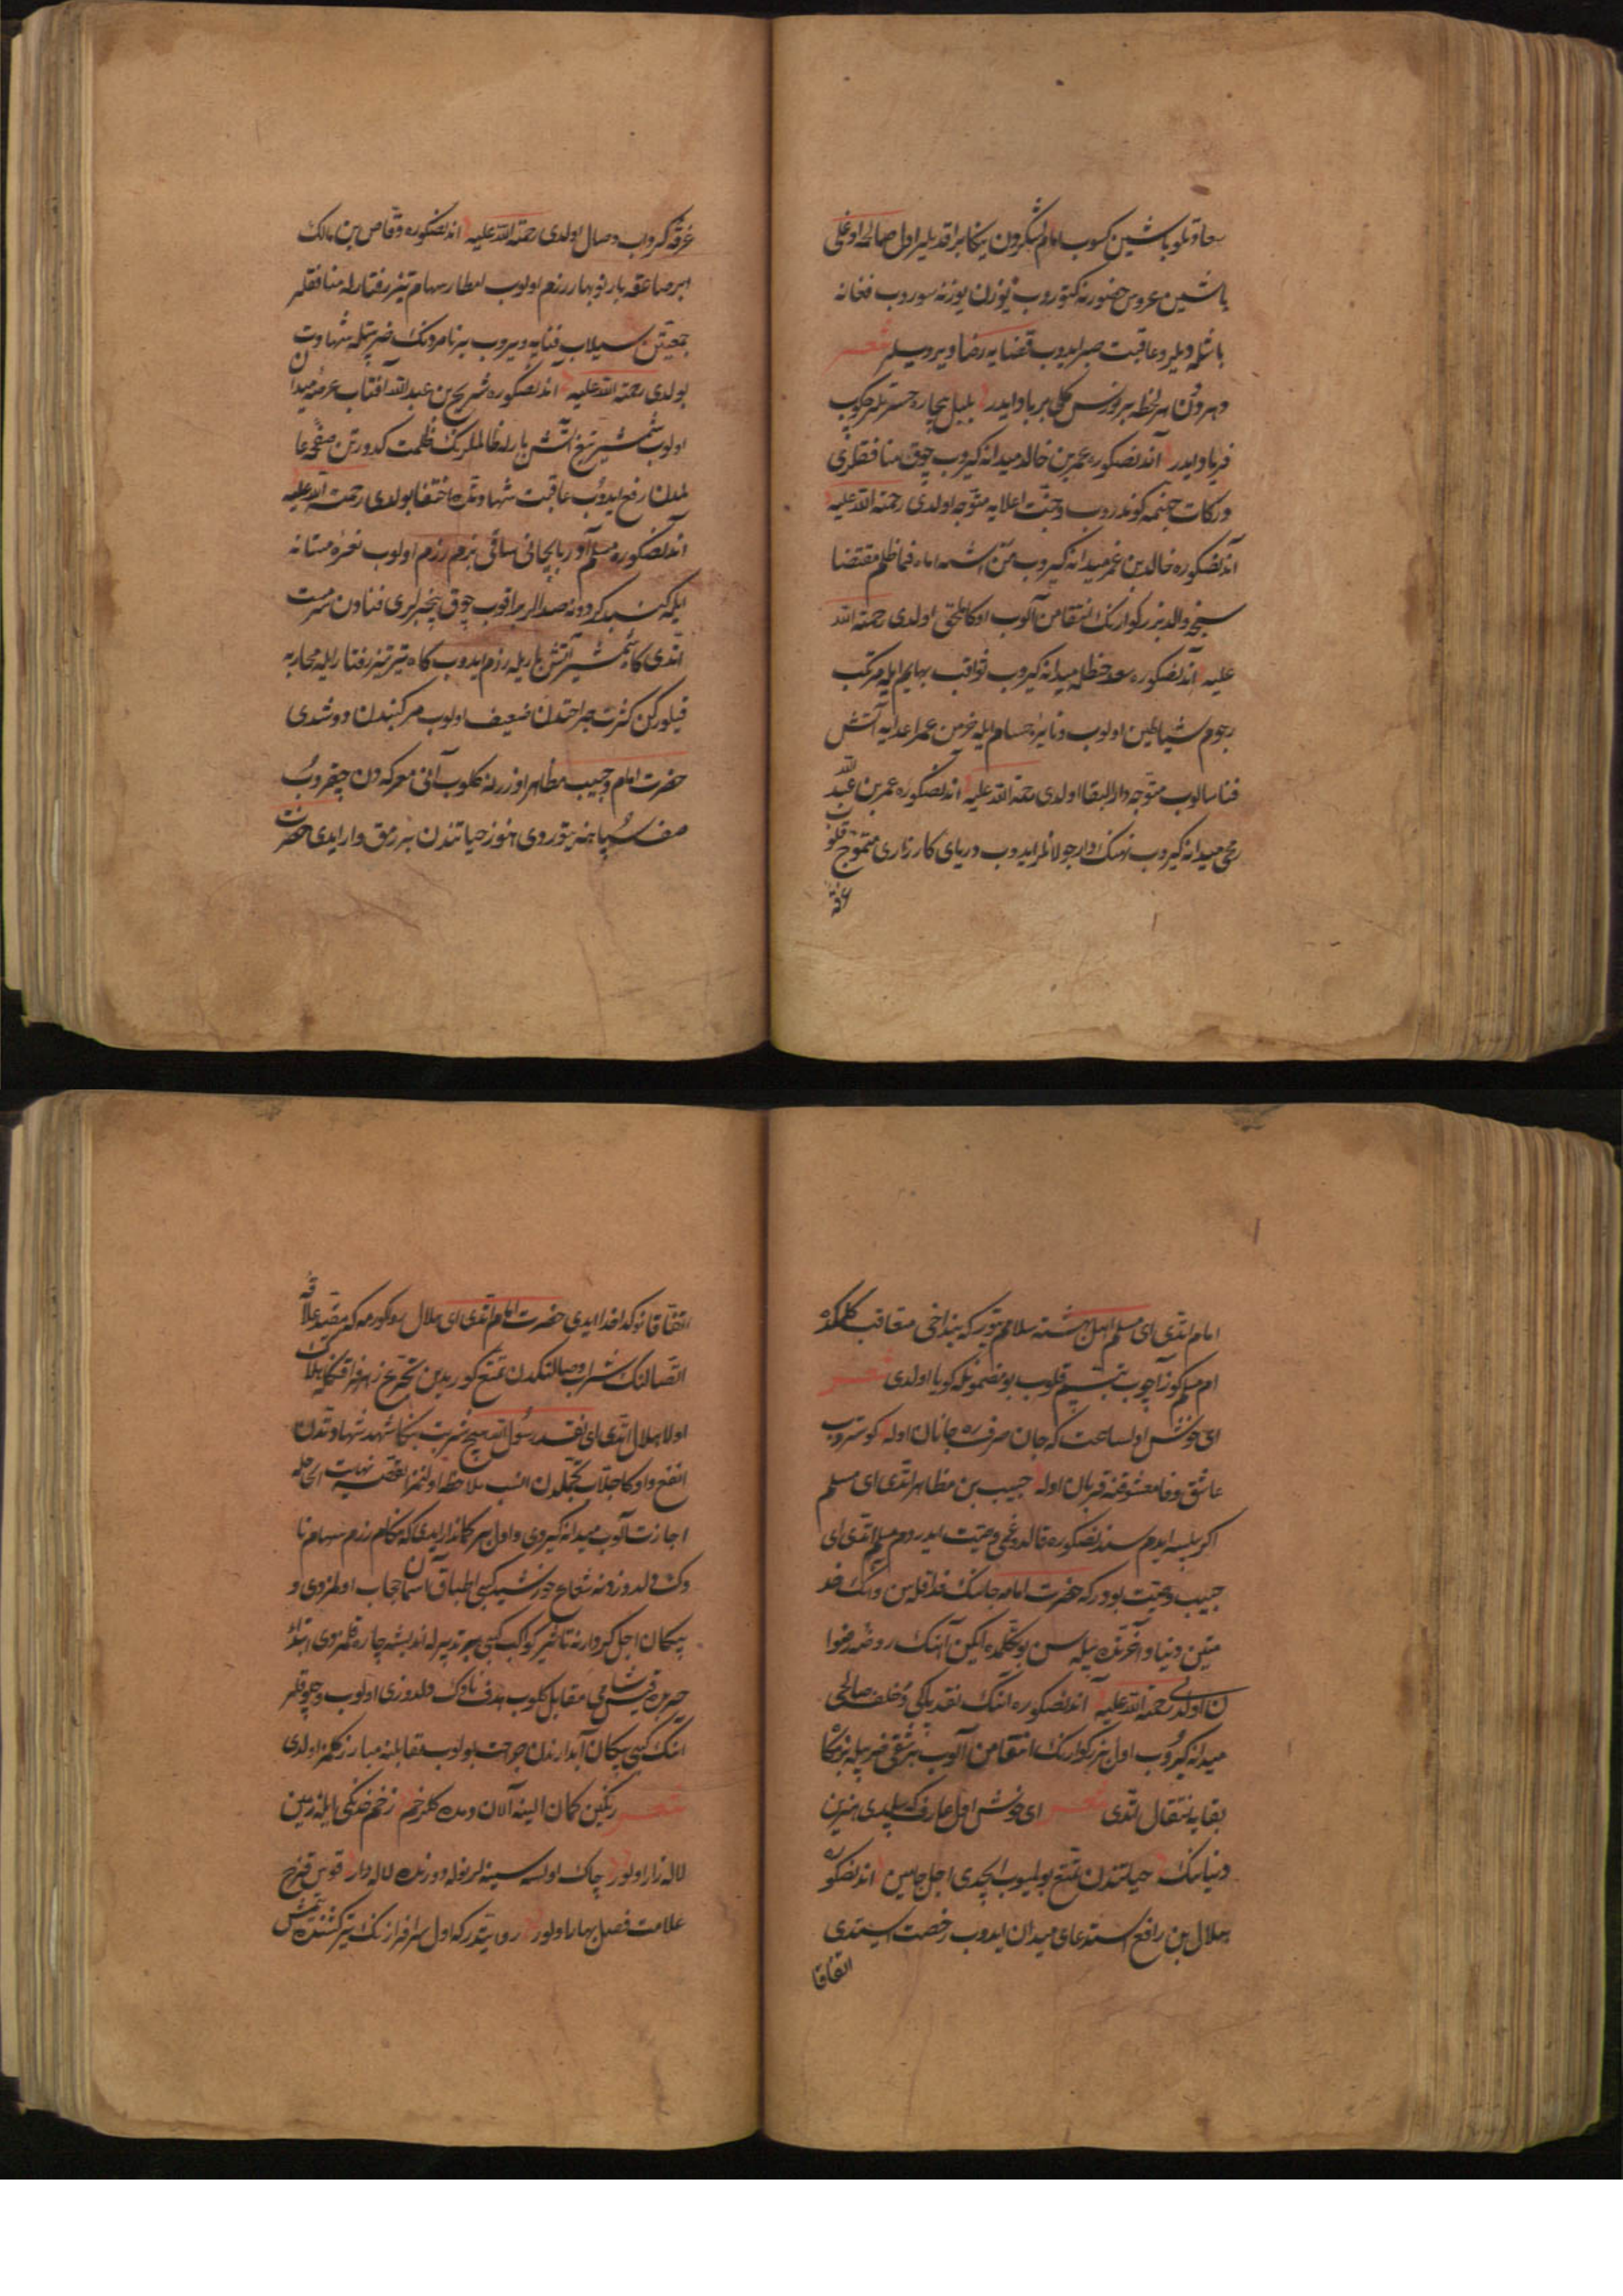 سعادتلو باشین کسوب امام لشکرون یکا براقدیلر اول صالحه اوغلی
باشین عروس حضورنه کتوروب یوزن یوزنه سوروب فغانه
باشلدیلر و عاقبت صبر ایدوب قضایه رضا ویردیلر شعر
دهر دون هر لحظه بر ورنس کلی بر باد ایدر بلبل بیچاره حسرتلر چکوب
فریاد ایدر آندنصکوره عمر بن خالد میدانه کیروب چوق منافقلری
درکات جهنمه کوندروب و جنت اعلایه متوجه اولدی رحمة الله علیه
آندنصکوره خالد بن عمر میدانه کیروب من اشبه اباه فما ظلم مقتضا
سنجه والد بزرکوارنک انتقامن آلوب اوکا ملحق اولدی رحمة الله
علیه آندنصکوره سعد حنظله میدانه کیروب ثواقب سهام ایله مرتکب
رجوم شیاطین اولوب و نایره حسام ایله خرمن عمر اعدایه آتش
فنا سالوب متوجه دار البقا اولدی رحمة الله علیه آندنصکوره عمر بن عبد الله
میدانه کیروب نهنک وار جولانلر ایدوب دریای کارزاری متموج قلوب
غرقه
غرقه کرداب وصال اولدی رحمة الله علیه آندنصکوره وقاص بن مالک
ابر صاعقه بار نوبهار رزم اولوب امطار سهام تیز رفتارله منافقلر
جمعیتن سیلاب فنایه ویروب بر نامردنک ضربتیله شهادت
بولدی رحمة الله علیه آندنصکوره شریح بن عبد الله آفتاب عرصه میدان
اولوب شمشیر تیغ آتش بارله ظالملرنک ظلمت کدورتن صفحه عا
لمدن رفع ایدوب عاقبت شهادتده اختفا بولدی رحمة الله علیه
آندنصکوره مسلم آذربایجانی ساقی بزم رزم اولوب نعره مستانه
ایله کنبد کردونه صدالر براقوب چوق بیخبرلری فنادن سرمست
اتدی کاه شمشیر آتش بار یله رزم ایدوب کاه تیر تیز رفتار ایله محاربه
قیلورکن کثرت جراحتدن ضعیف اولوب مرکبندن دوشدی
حضرت امام و حبیب مظاهر اوزرنه کلوب آنی معرکه دن چیقروب
صف سپاهنه یتوردی هنوز حیاتندن بر رمق وار ایدی حضرت
امام اتدی ای مسلم اهل بهشته سلامم یتور که بنداخی متعاقب کلمکده
ام مسلم کوز آچوب تبسم قلوب بو مضمونله کویا اولدی شعر
ای خوش اولساعت که جان صرف ره جانان اوله کوستروب
عاشق وفا معشوقنه قربان اوله حبیب بن مظاهر اتدی ای مسلم
اکر بلسه ایدم سندنصکوره قالدوغمی وصیت ایدر دم مسلم اتدی ای
حبیب وصیت بودر که حضرت امامه جانک فدا قلاسن و آنک خد
متین دنیا و آخرتده بیله سن بو تکلمده ایکن آنک روضه رضوا
ن اولدی رحمة الله علیه آندنصکوره آنک نقد پاکی و خلف صالحی
میدانه کیروب اول بزرکوارنک انتقامن آلوب بر شقی ضربیله بزمکا
بقایه انتقال اتدی شعر ای خوش اول عارف که بیلدی هنرین
دنیانک حیاتندن تمتع بولمیوب ایچدی اجل جامین آندنصکوره
هلال بن رافع استدعای میدان ایدوب رخصت استدی
اتفاقا
اتفاقا نوکد خدا ایدی حضرت امام اتدی ای هلال
اتصالنک شراب وصالنکدن تمتع کورمدین تجرع زهر فراقکله هلاک
اولا هلال اتدی ای نقد رسول الله هیچ شربت بنکا شهد شهادتدن
انفع و اوکا جلاب تجملدن انسب ملاحظه اولنمز القصه نهایت الحاحله
اجازت آلوب میدانه کیردی و اول بر کماندار ایدی که هنکام رزم سهام نا
وک دلدوزونه شعاع خورشید کبی اطباق آسمان حجاب اولمزدی و
پیکان اجل کردارنه تاثیر کواکب کبی هر تدبیرله اندیشه چاره قلنمزدی ابتدا
مقابل کلوب هدف ناوک دلدوزی اولوب و چوقلر
آنک کبی پیکان آبدارندن جراحت بولوب مقابلنه مبارز کلمز اولدی
شعر رنکین کمان الینه آلان دمده کلرخم زخم خدنکی ایله زمین
لاله زار اولور چاک اولسه سینه لر نوله دورنده لاله وار قوس قزح
علامت فصل بهار اولور روایتدر که اول سرافرازنک تیرکشنده یتمش